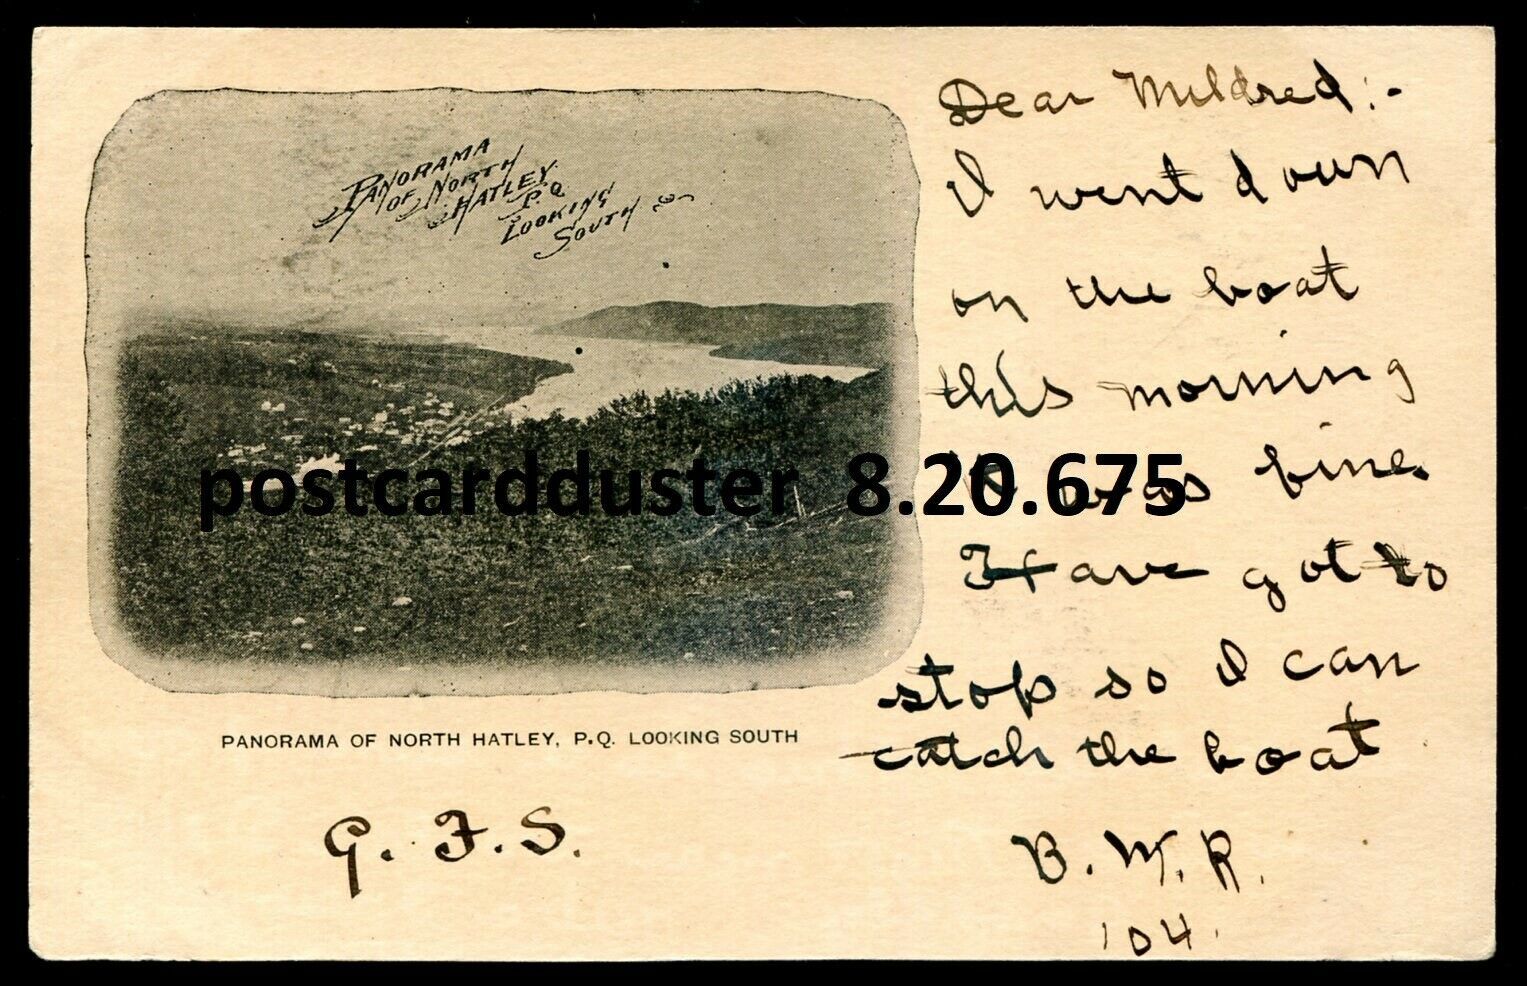 PANORAMA
OF NORTH
HATLEY
P.Q
LOOKING
SOUTH
PANORAMA OF NORTH HATLEY, P.Q. LOOKING SOUTH
G. F. S.
Dear Mildred:-
I went down
on the boat
this morning
It was fine.
Have got to
stop so I can
catch the boat
B. W. R.
'04.
postcardduster 8.20.675